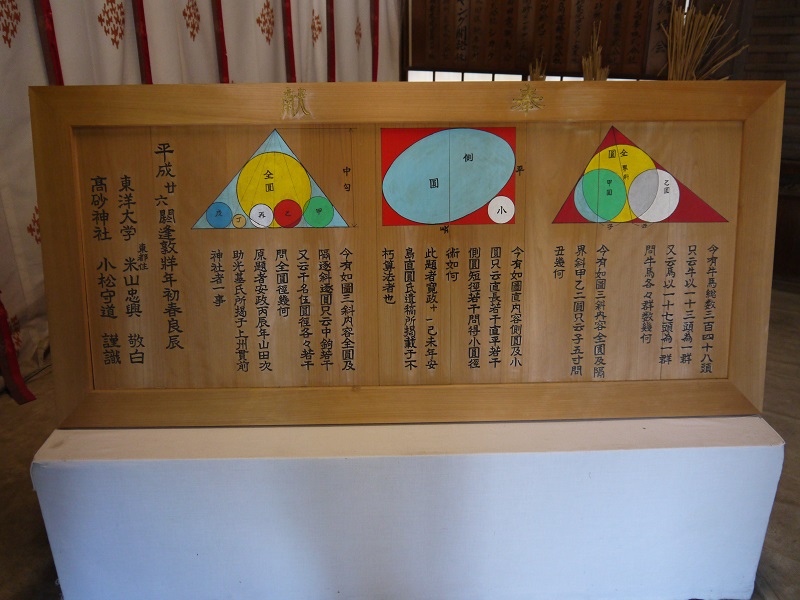 奉献
今有牛馬総数三百四十八頭
只云牛以一十三頭為一群
又云馬以一十七頭為一群
問牛馬各々群数幾何
全圓
甲圓
乙圓
子
丑
今有如圖三斜内容全圓及隔
界斜甲乙二圓只云子五寸問
丑幾何
側
圓
平
小
今有如圖直内容側圓及小
圓只云直長若干直平若干
側圓短徑若干問得小圓徑
術如何
此題者寛政十一己未年安
島直圓氏遺稿所掲載于不
朽算法者也
中勾
全圓
甲
乙
丙
丁
戊
今有如圖三斜内容全圓及
隔逐斜邊圓只云中鉤若干
又云干名伍圓徑各々若干
問全圓徑幾何
原題者安政丙辰年山田次
助光基氏所掲于上州貫前
神社者一事
平成廿六閼逢敦牂年初春良辰
東都住
東洋大学 米山忠興 敬白
高砂神社 小松守道 謹識